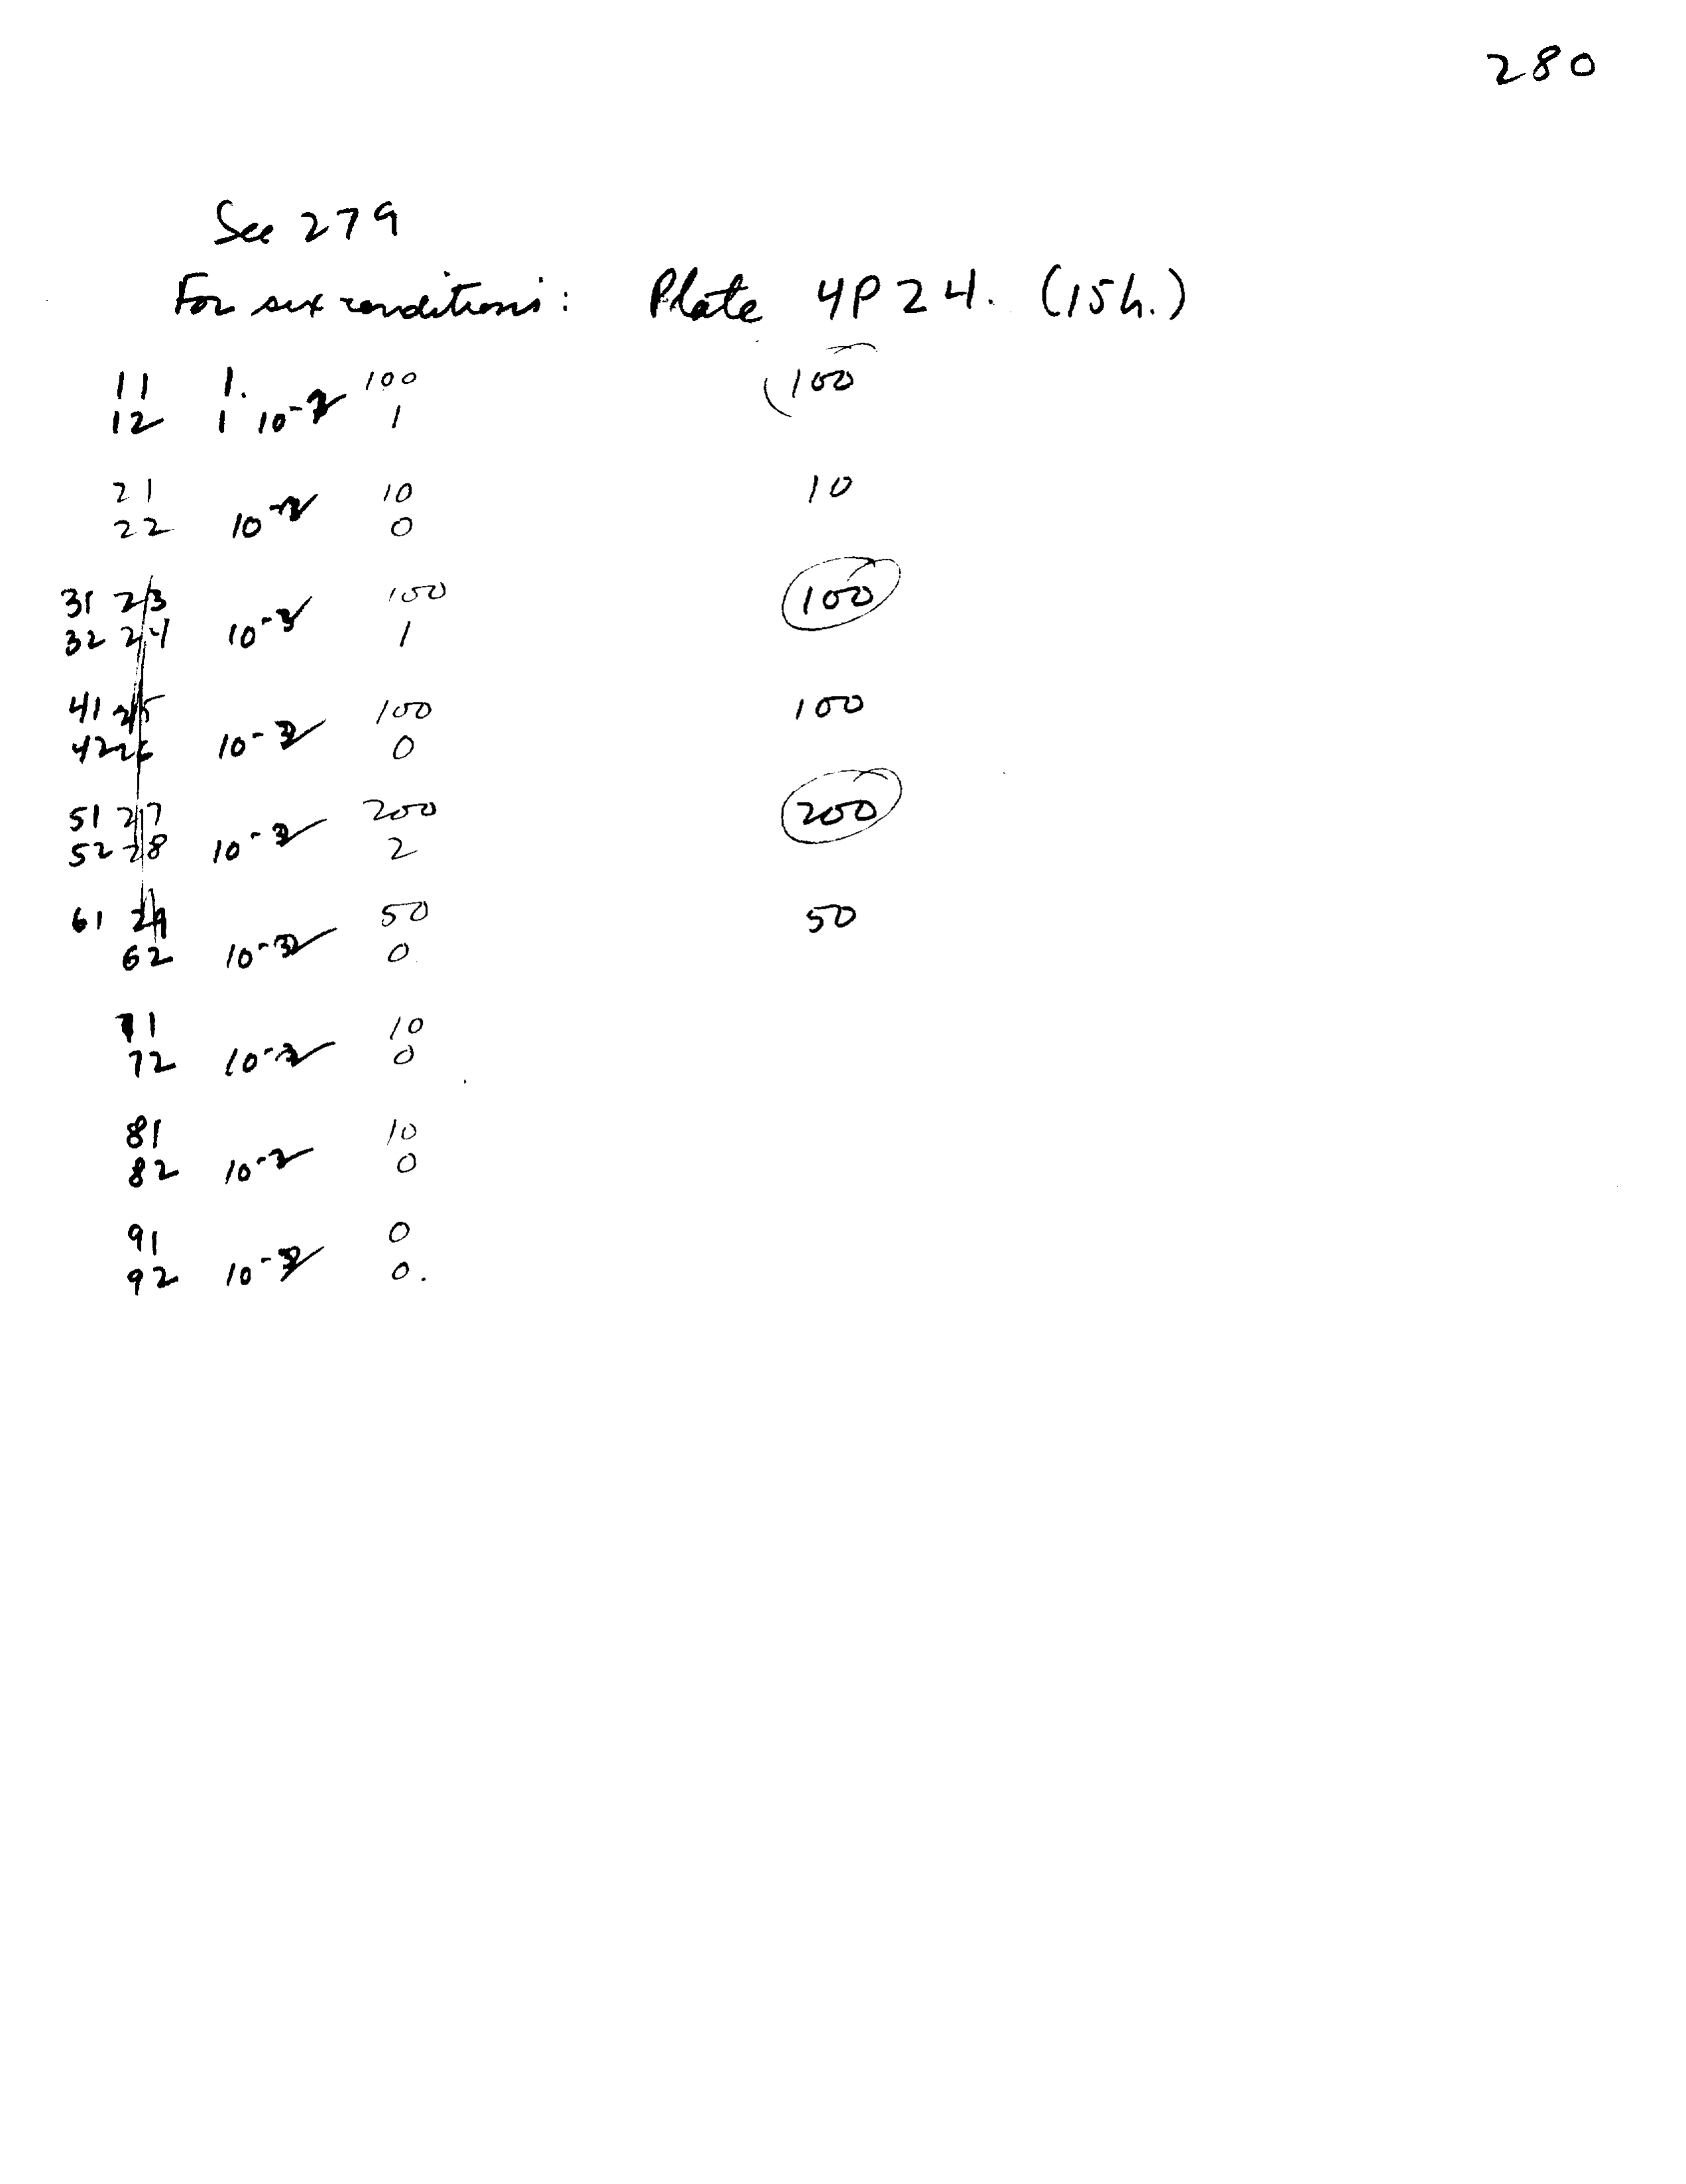 280
See 279
For six conditions: Plate 4P24. (15h.)
11 1. 100 100
12 1 10-2 1
21 10 10
22 10-2 0
31 23 100 100
32 24 10-2 1
41 25 100 100
42 26 10-2 0
51 27 200 200
52 28 10-2 2
61 29 50 50
62 10-2 0
71 10
72 10-2 0
81 10
82 10-2 0
91 0
92 10-2 0.